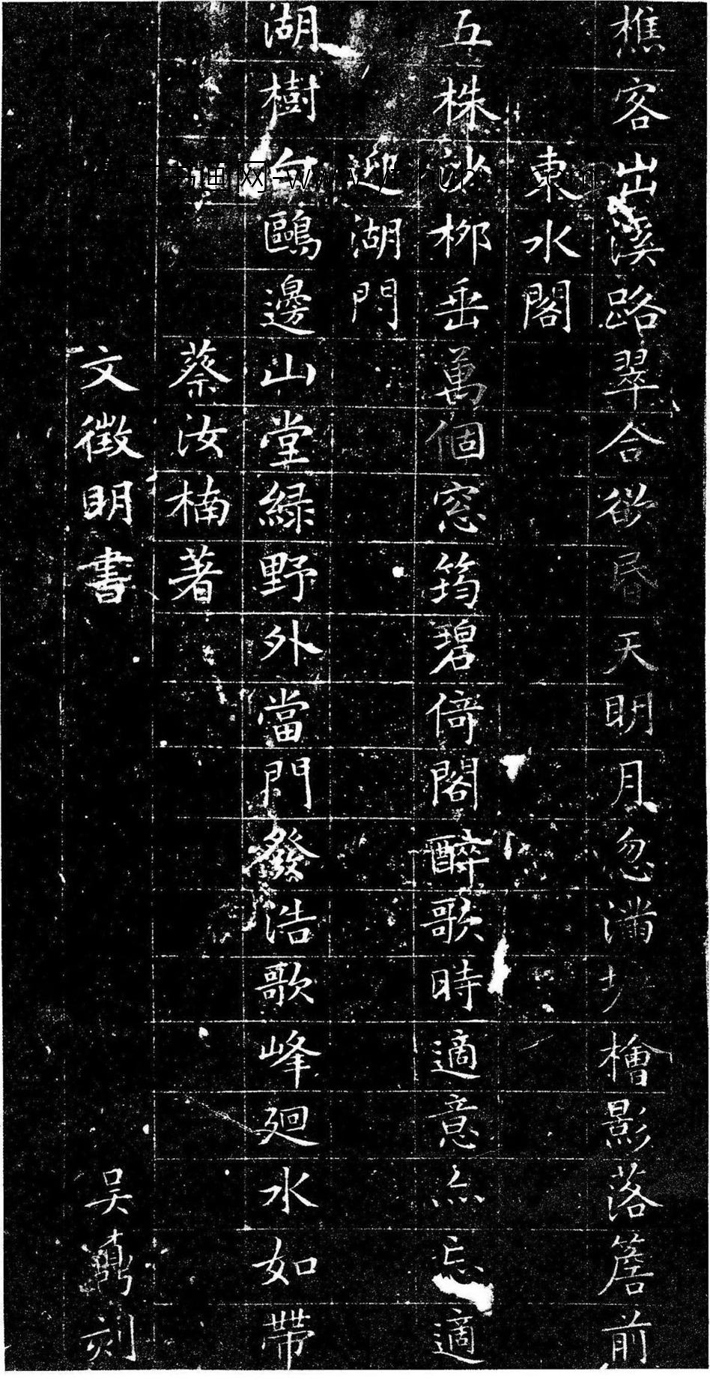 樵客山溪路翠合欲昏天明月忽滿坐檜影落簷前
東水閣
五株沙柳垂萬個窓筠碧倚閣醉歌時適意亦忘適
迎湖門
湖樹白鷗邊山堂緑野外當門發浩歌峰廻水如帶
蔡汝楠著
文徵明書
吴鼒刻